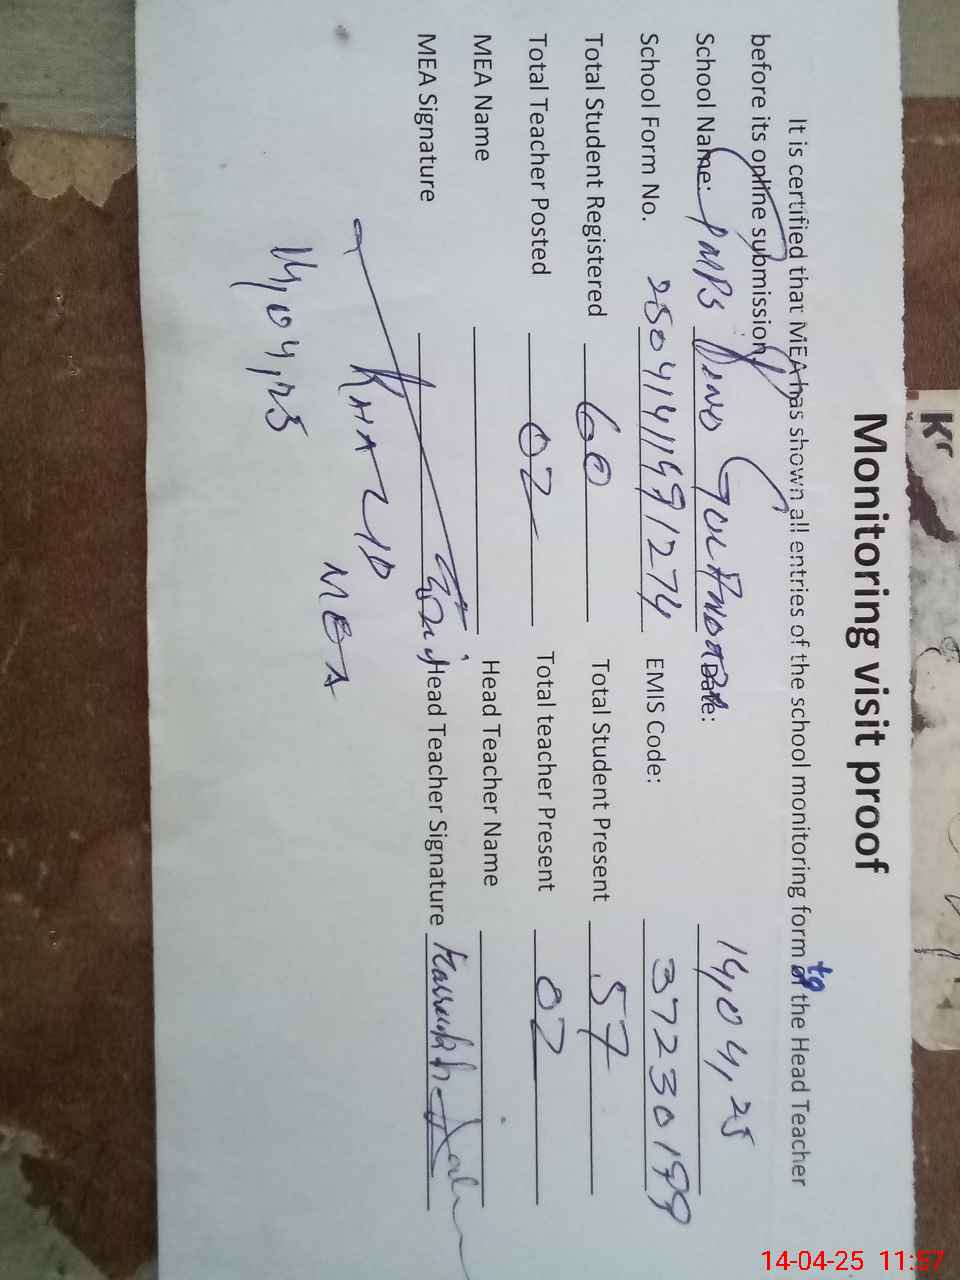 Monitoring visit proof
It is certified that MEA has shown all entries of the school monitoring form to the Head Teacher
before its online submission.
School Name: GMPS Date: 14,04,25
School Form No. 25041411991274 EMIS Code: 37230199
Total Student Registered 60 Total Student Present 57
Total Teacher Posted 02 Total teacher Present 02
MEA Name Head Teacher Name
MEA Signature Head Teacher Signature
KHALID
MEA
14,04,25
14-04-25 11:57